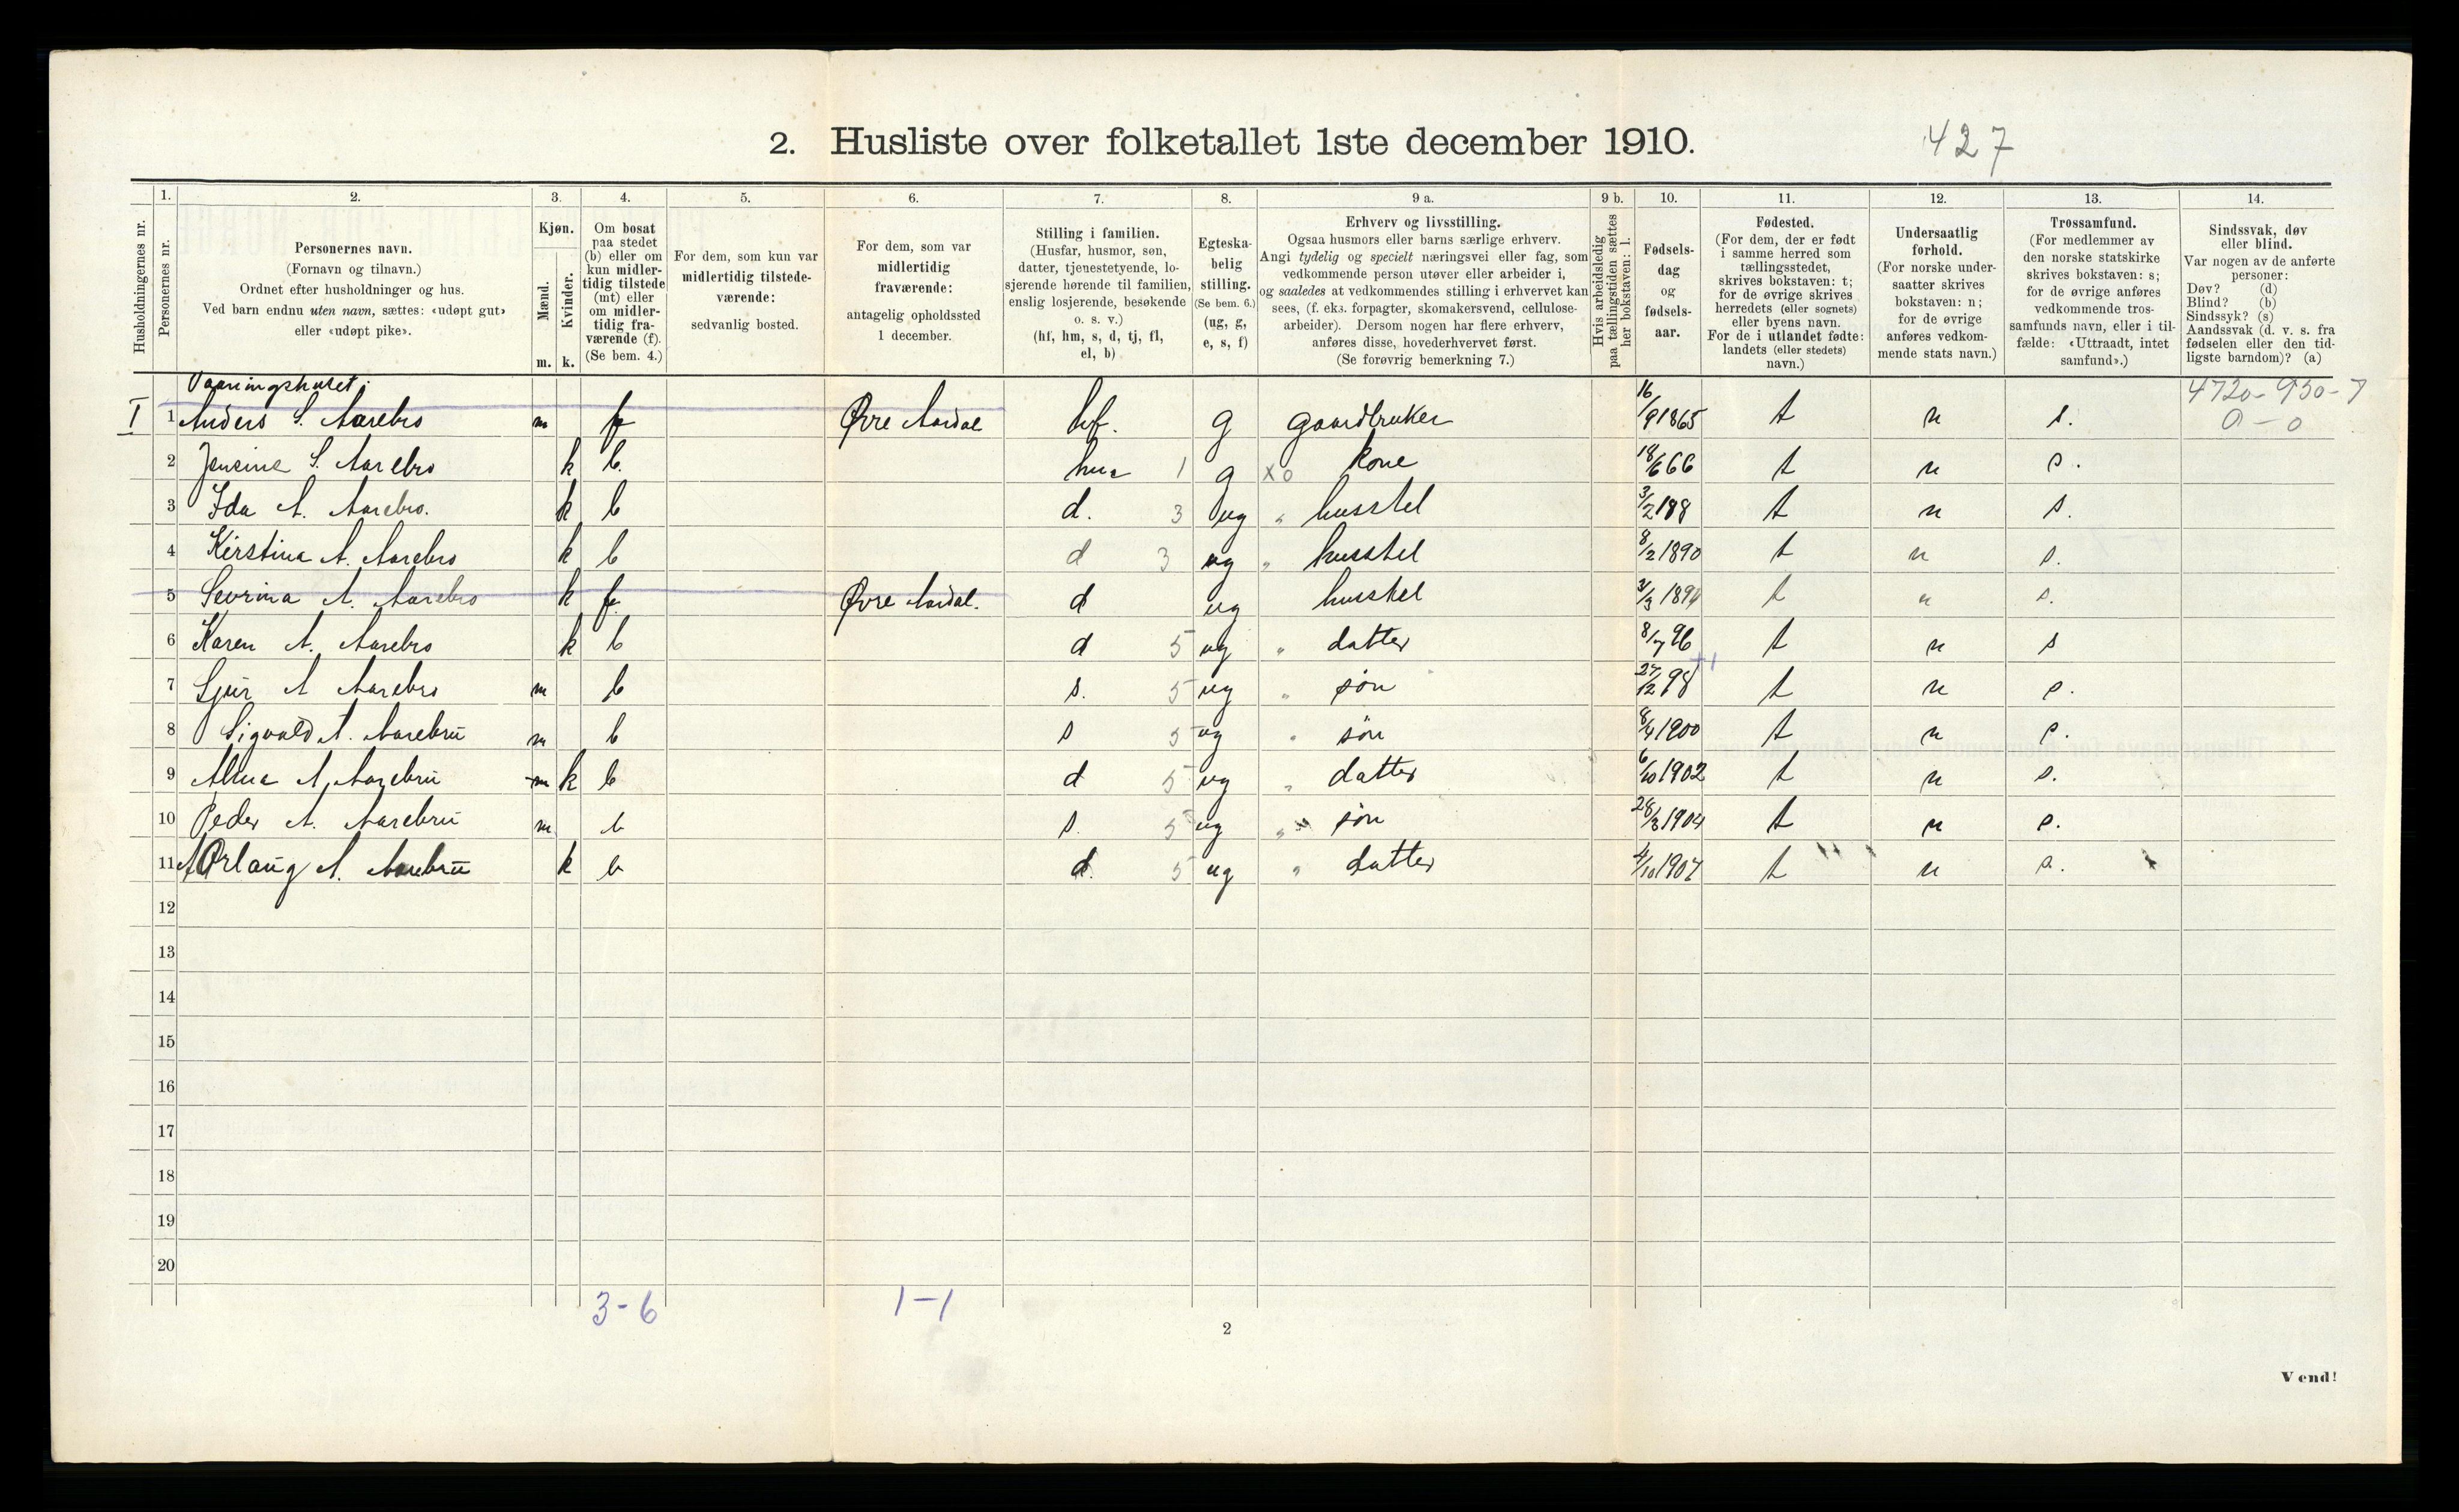 2. Husliste over folketallet 1ste december 1910.
427
1. 2. 3. 4. 5. 6. 7. 8. 9 a. 9 b. 10. 11. 12. 13. 14.
Husholdningernes nr.
Personernes nr.
Personernes navn.
(Fornavn og tilnavn.)
Ordnet efter husholdninger og hus.
Ved barn endnu uten navn, sættes: «udøpt gut»
eller «udøpt pike».
Kjøn.
Mænd.
Kvinder.
m. k.
Om bosat
paa stedet
(b) eller om
kun midler-
tidig tilstede
(mt) eller
om midler-
tidig fra-
værende (f).
(Se bem. 4.)
For dem, som kun var
midlertidig tilstede-
værende:
sedvanlig bosted.
For dem, som var
midlertidig
fraværende:
antagelig opholdssted
1 december.
Stilling i familien.
(Husfar, husmor, søn,
datter, tjenestetyende, lo-
sjerende hørende til familien,
enslig losjerende, besøkende
o. s. v.)
(hf, hm, s, d, tj, fl,
el, b)
Egteska-
belig
stilling.
(Se bem. 6.)
(ug, g,
e, s, f)
Erhverv og livsstilling.
Ogsaa husmors eller barns særlige erhverv.
Angi tydelig og specielt næringsvei eller fag, som
vedkommende person utøver eller arbeider i,
og saaledes at vedkommendes stilling i erhvervet kan
sees, (f. eks. forpagter, skomakersvend, cellulose-
arbeider). Dersom nogen har flere erhverv,
anføres disse, hovederhvervet først.
(Se forøvrig bemerkning 7.)
Hvis arbeidsledig
paa tællingstiden sættes
her bokstaven: l.
Fødsels-
dag
og
fødsels-
aar.
Fødested.
(For dem, der er født
i samme herred som
tællingsstedet,
skrives bokstaven: t;
for de øvrige skrives
herredets (eller sognets)
eller byens navn.
For de i utlandet fødte:
landets (eller stedets)
navn.)
Undersaatlig
forhold.
(For norske under-
saatter skrives
bokstaven: n;
for de øvrige
anføres vedkom-
mende stats navn.)
Trossamfund.
(For medlemmer av
den norske statskirke
skrives bokstaven: s;
for de øvrige anføres
vedkommende tros-
samfunds navn, eller i til-
fælde: «Uttraadt, intet
samfund».)
Sindssvak, døv
eller blind.
Var nogen av de anførte
personer:
Døv? (d)
Blind? (b)
Sindssyk? (s)
Aandssvak (d. v. s. fra
fødselen eller den tid-
ligste barndom)? (a)
Vaaningshuset:
4720-930-7
0 - 0
I 1 Anders S. Aarebro m f Øvre Aardal hf. g gaardbruker 16/9 1865 t n s.
2 Jensine S. Aarebro k b. hm 1 g x0 kone 18/6 66 t n s.
3 Ida A. Aarebro. k b d. 3 ug " husstel 3/2 188 t n s.
4 Kirstina A. Aarebro k b d 3 ug " husstel 8/2 1890 t n s.
5 Sevrina A. Aarebro k f. Øvre Aardal. d ug husstel t n s.
6 Karen A. Aarebro k b d 5 ug " datter 8/7 96 t n s
7 Sjur A Aarebro m b s. 5 ug " søn 27/12 98 t n s.
8 Sigvald A. Aarebru m b s 5 ug " søn 8/4 1900 t n s.
9 Alma A. Aarebru m k b d 5 ug " datter 6/10 1902 t n s.
10 Peder A. Aarebru m b s. 5 ug " søn 28/3 1904 t n s.
11 Aarebru k b d. 5 ug " datter 4/10 1907 t n s.
12
13
14
15
16
17
18
19
20
3-6 1-1
2
Vend!